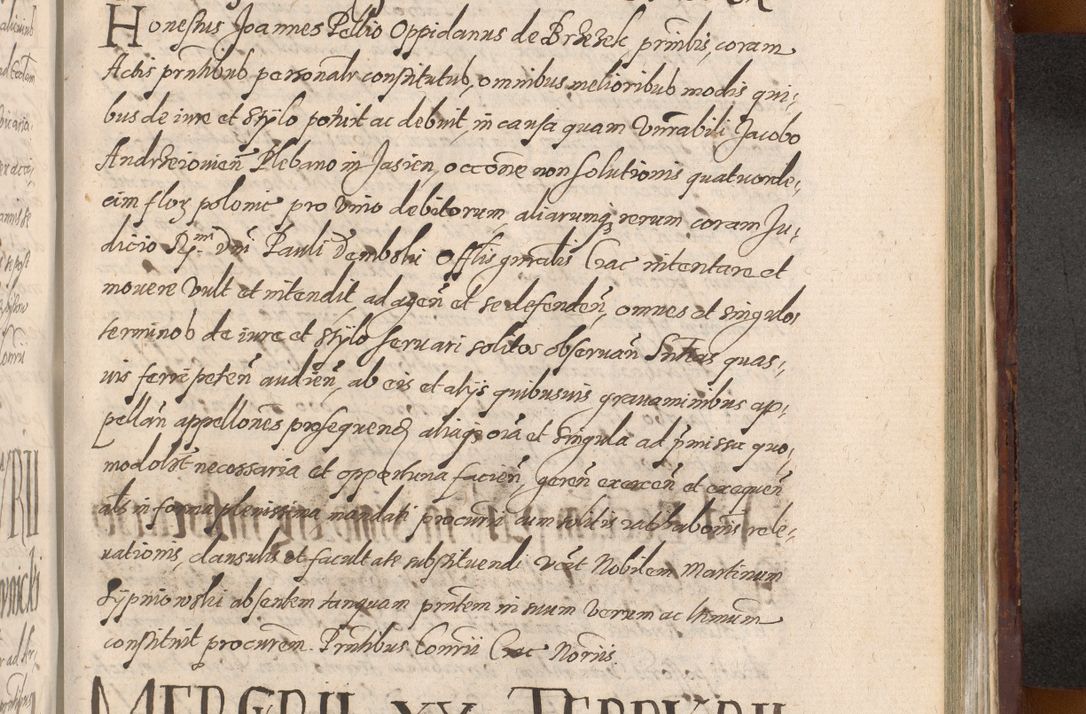 Honestus Joannes Pellio Oppidanus de Brzezek, prntbis, coram
Actis prntibus personalr constitutus, omnibus melioribus modis qui,
bus de iure et stylo potuit ac debuit, in causa quam Vnrabili Jacobo
Andrzeiouien Plebano in Jasien, occone non solutionis quatuorde,
cim flor polonic pro vino debitorum aliarumq rerum coram Ju,
dicio Rmi Dni Pauli Dembski Offlis gnralis Crac intentare et
mouere vult et intendit, ad agen et se defenden, omnes et singulos
terminos de iure et stylo seruari solitos obseruan Sntias quas,
uis ferri peten audien, ab eis et alijs quibusuis grauaminibus ap,
pellan appellones prosequend aliaq oia et singula ad pmissa quo,
modolbt necessaria et opportuna facien, geren exercen et exequen
als in forma plenissima mandati procurii cum solitis rele,
uationis, clausulis et facultate substituendi vcet Nobilem Martinum
Lypniowski absentem tanquam prntem in suum verum ac ltmum
constituit procurem Prntibus Conrii Crac Noriis
MERCRII XX FEBRVRII